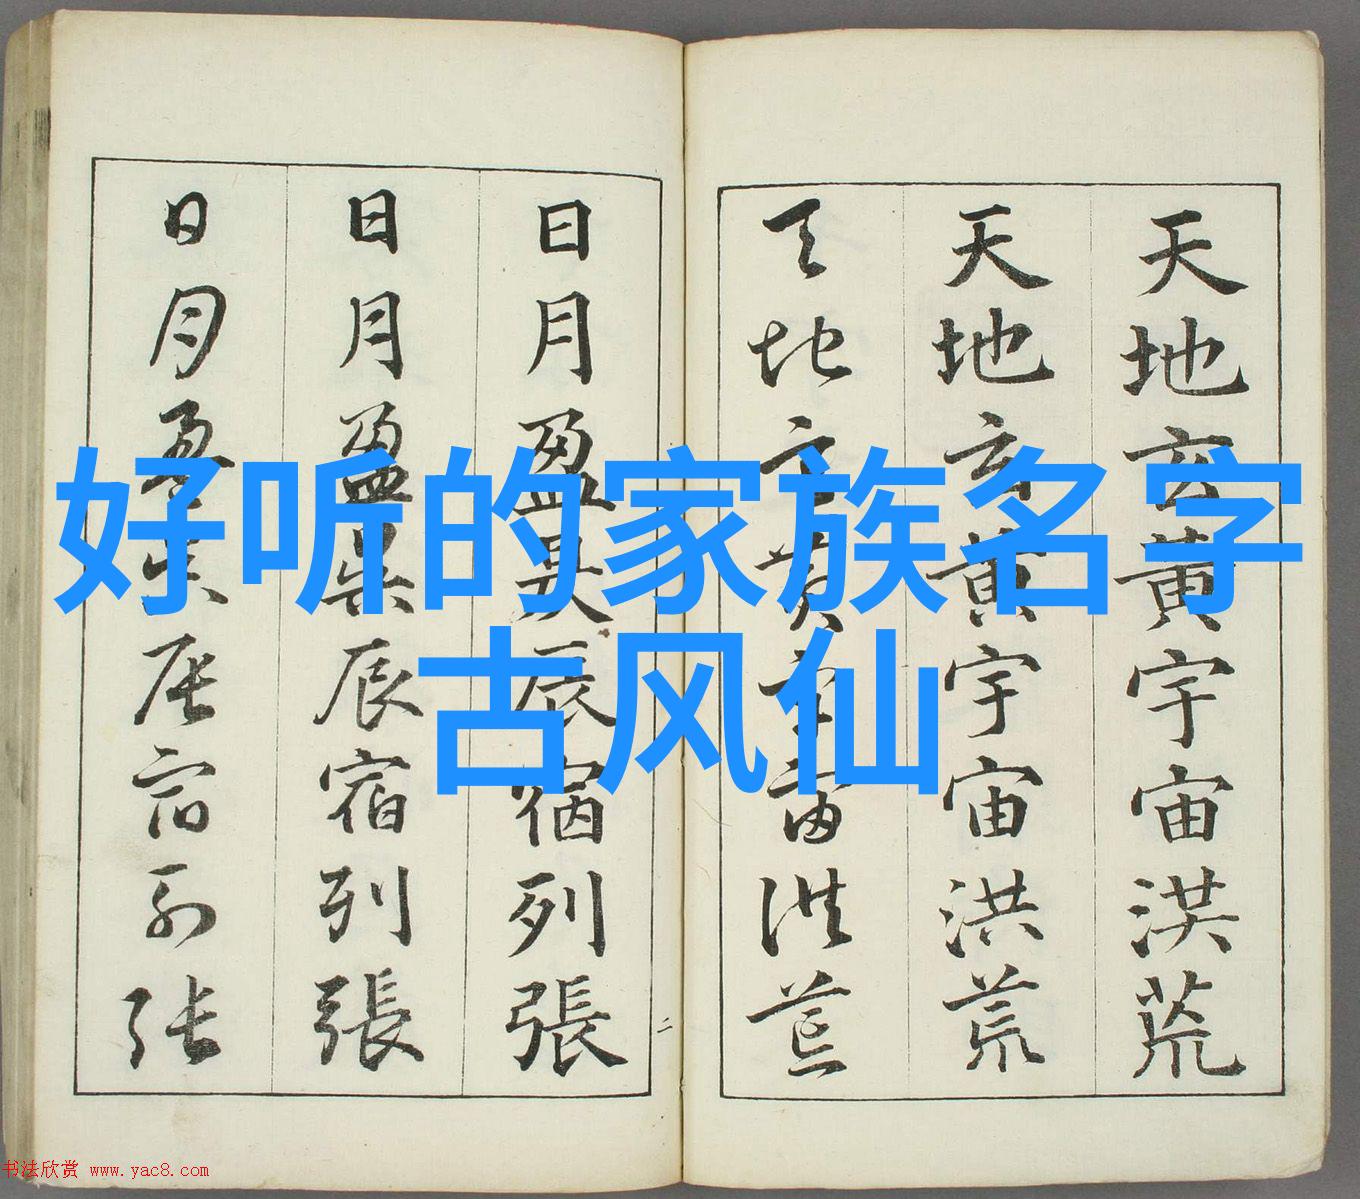 好听的家族名字
古风仙
天地玄黄宇宙洪荒
天地玄黄宇宙洪荒
天地玄黄宇宙洪荒
日月盈昃辰宿列張
日月盈昃辰宿列張
日月盈昃辰宿列张
二
书法欣赏 www.yac8.com